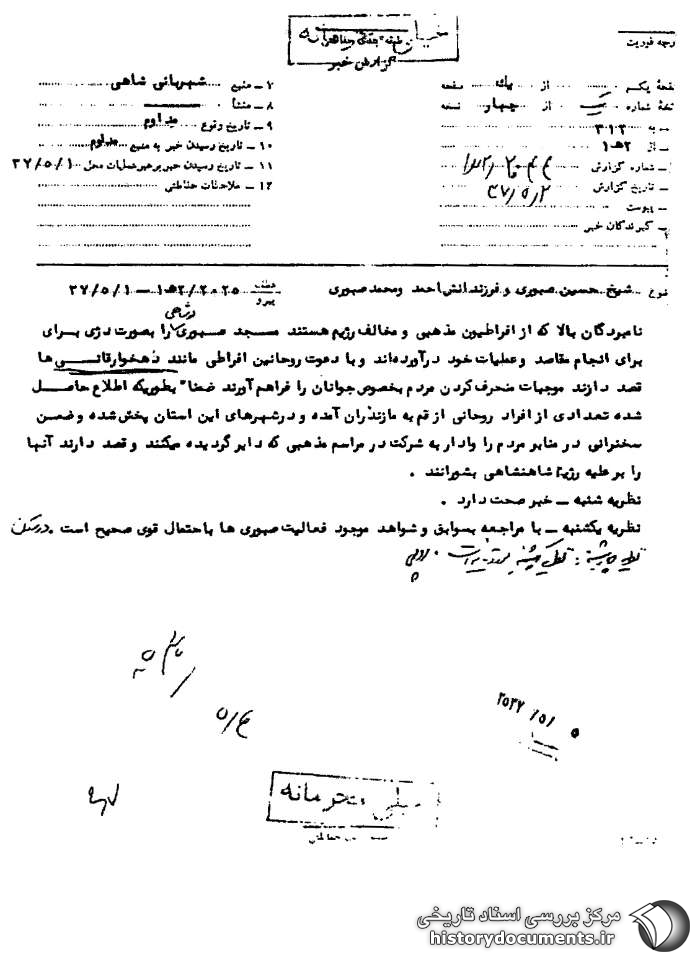 خیلی محرمانه
طبقه بندی حفاظتی
گزارش خبر
درجه فوریت
صفحه یک از یک صفحه
نسخه شماره یک از چهار نسخه
به ۳۱۲
از ۲ﻫ۱
شماره گزارش
تاریخ گزارش ۳۷/۵/۲
پیوست
گیرندگان خبر
۷ ـ منبع شهربانی شاهی
۸ ـ منشأ
۹ ـ تاریخ وقوع مداوم
۱۰ ـ تاریخ رسیدن خبر به منبع مداوم
۱۱ ـ تاریخ رسیدن خبر برهبر عملیات محل ۳۷/۵/۱
۱۲ ـ ملاحظات حفاظتی
موضوع شیخ حسین صبوری و فرزندانش احمد ومحمد صبوری
عطف
پیرو
۲۰۲۵/۲ﻫ۱ ــ ۳۷/۵/۱
در شاهی
نامبردگان بالا که از افراطیون مذهبی و مخالف رژیم هستند مسجد صبوری را بصورت دژی برای
برای انجام مقاصد وعملیات خود درآورده‌اند و با دعوت روحانین افراطی مانند دهخوارقانی ها
قصد دارند موجبات منحرف کردن مردم بخصوص جوانان را فراهم آورند ضمنا" بطوریکه اطلاع حاصل
شده تعدادی از افراد روحانی از قم به مازندران آمده و در شهرهای این استان پخش شده و ضمن
سخنرانی در منابر مردم را وادار به شرکت در مراسم مذهبی که دایر گردیده میکنند و قصد دارند آنها
را بر علیه رژیم شاهنشاهی بشورانند .
نظریه شنبه ــ خبر صحت دارد .
نظریه یکشنبه ــ با مراجعه بسوابق و شواهد موجود فعالیت صبوری ها با احتمال قوی صحیح است .
نظریه یکشنبه مورد تائید است .
۲۵۳۷/۵/۵
خیلی محرمانه
مرکز بررسی اسناد تاریخی
historydocuments.ir